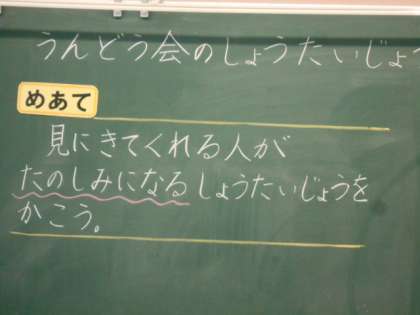 うんどう会のしょうたいじょ
めあて
見にきてくれる人が
たのしみになるしょうたいじょうを
かこう。